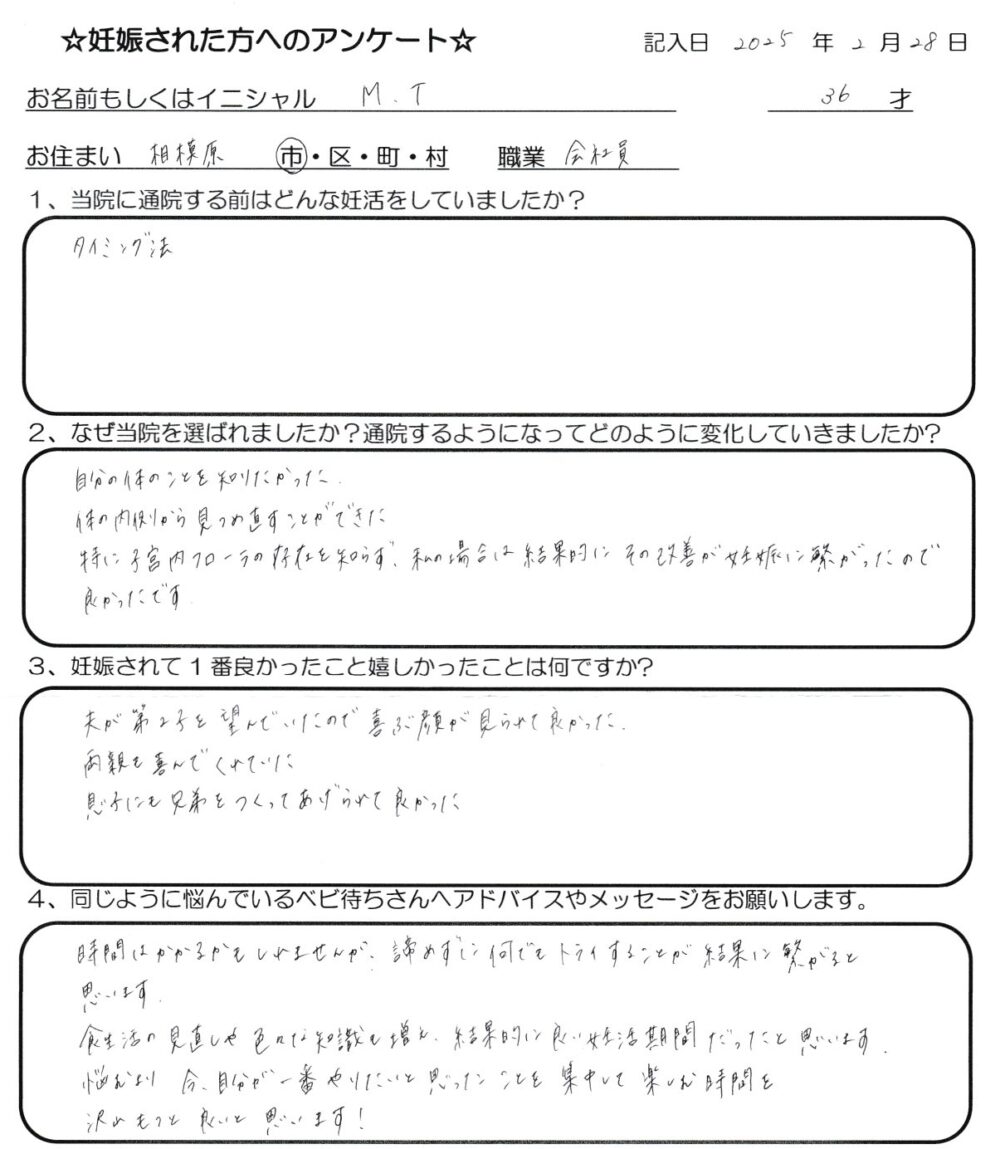 ☆妊娠された方へのアンケート☆ 記入日 2025 年 2 月 28 日
お名前もしくはイニシャル M.T 36 才
お住まい 相模原 市・区・町・村 職業 会社員
1、当院に通院する前はどんな妊活をしていましたか？
タイミング法
2、なぜ当院を選ばれましたか？通院するようになってどのように変化していきましたか?
自分の体のことを知りたかった.
体の内側から見つめ直すことができた
特に子宮内フローラの存在を知らず、私の場合は結果的にその改善が妊娠に繋がったので
良かったです.
3、妊娠されて1番良かったこと嬉しかったことは何ですか?
夫が第2子を望んでいたので喜ぶ顔が見られて良かった.
両親も喜んでくれていた
息子にも兄弟をつくってあげられて良かった
4、同じように悩んでいるベビ待ちさんへアドバイスやメッセージをお願いします。
時間はかかるかもしれませんが、諦めずに何でもトライすることが結果に繋がると
思います.
食生活の見直しや色々な知識も増え、結果的に良い妊活期間だったと思います.
悩むより今、自分が一番やりたいと思ったことを集中して楽しむ時間を
沢山もつと良いと思います!